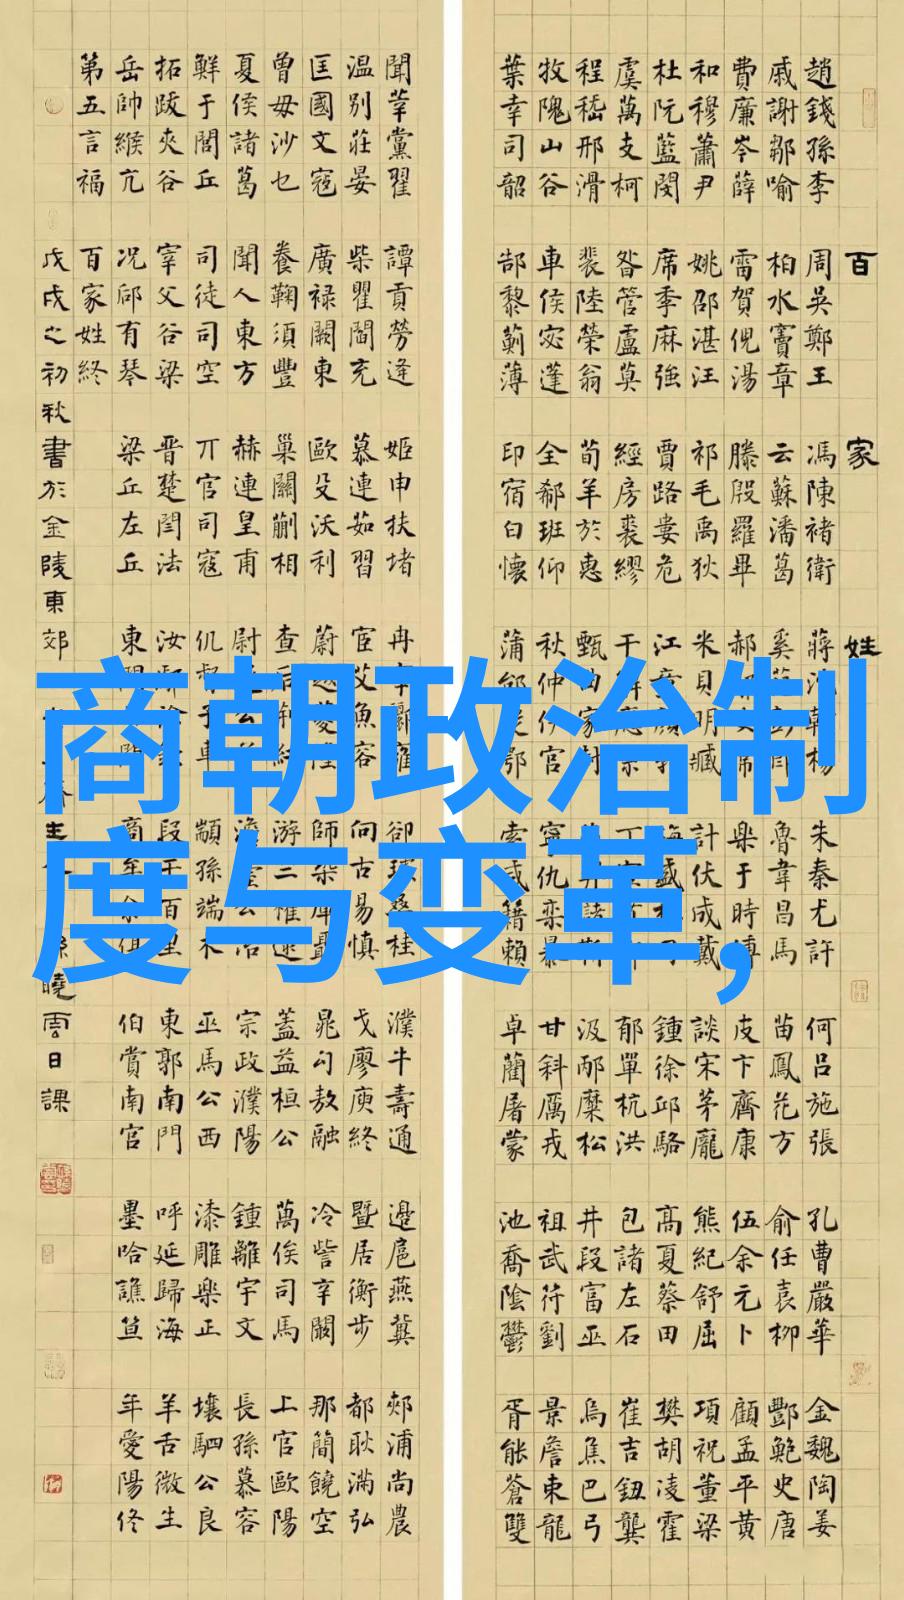 百家姓
趙錢孫李 周吳鄭王 馮陳褚衛 蔣沈韓楊 朱秦尤許 何呂施張 孔曹嚴華 金魏陶姜
戚謝鄒喻 柏水竇章 云蘇潘葛 奚范彭郎 魯韋昌馬 苗鳳花方 俞任袁柳 酆鮑史唐
費廉岑薛 雷賀倪湯 滕殷羅畢 郝 常 樂于時傅 皮卞齊康 伍余元卜 顧孟平黃
和穆蕭尹 姚邵湛汪 祁毛禹狄 米貝明臧 計伏成戴 談宋茅龐 熊紀舒屈 項祝董梁
杜阮藍閔 席季麻強 賈路婁危 江童顏 梅盛林刁 鍾徐邱駱 高夏蔡田 樊胡凌霍
虞萬支柯 昝管盧莫 經房裘繆 干解應宗 丁 郁單杭洪 包諸左石 崔吉鈕龔
程嵇邢滑 裴陸榮翁 荀羊於惠 甄曲家封 汲邴糜松 井段富巫 烏焦巴弓
牧隗山谷 車侯宓蓬 全郗班仰 秋仲伊宮 寧仇欒暴 甘斜厲戎 祖武符劉 景詹束龍
葉幸司韶 郜黎薊薄 印宿白懷 蒲邰從鄂 索咸籍賴 卓藺屠蒙 池喬陰鬱 胥能蒼雙
聞莘黨翟 譚貢勞逄 姬申扶堵 冉宰酈雍 卻璩桑桂 濮牛壽通 邊扈燕冀 郟浦尚農
温別莊晏 柴瞿閻充 慕連茹習 宦艾魚容 向古易慎 戈廖庾終 暨居衡步 都耿滿弘
匡國文寇 廣祿闕東 歐殳沃利 蔚越夔隆 師鞏厙聶 晁勾敖融 冷訾辛闞 那簡饒空
曾毋沙乜 養鞠須豐 巢關蒯相 查后荊紅 游竺權逯 蓋益桓公 萬俟司馬 上官歐陽
夏侯諸葛 聞人東方 赫連皇甫 尉遲公羊 澹臺公冶 宗政濮陽 鍾離宇文 長孫慕容
鮮于閭丘 司徒司空 丌官司寇 仉督子車 顓孫端木 巫馬公西 漆雕樂正 壤駟公良
拓跋夾谷 宰父谷梁 晉楚閆法 汝鄢涂欽 段干百里 東郭南門 呼延歸海 羊舌微生
岳帥緱亢 況郈有琴 梁丘左丘 東門西門 商牟佘佴 伯賞南宮 墨哈譙笪 年愛陽佟
第五言福 百家姓終
戊戌之初秋書於金陵東郊 孫曉雲日課
商朝政治制
度与变革,